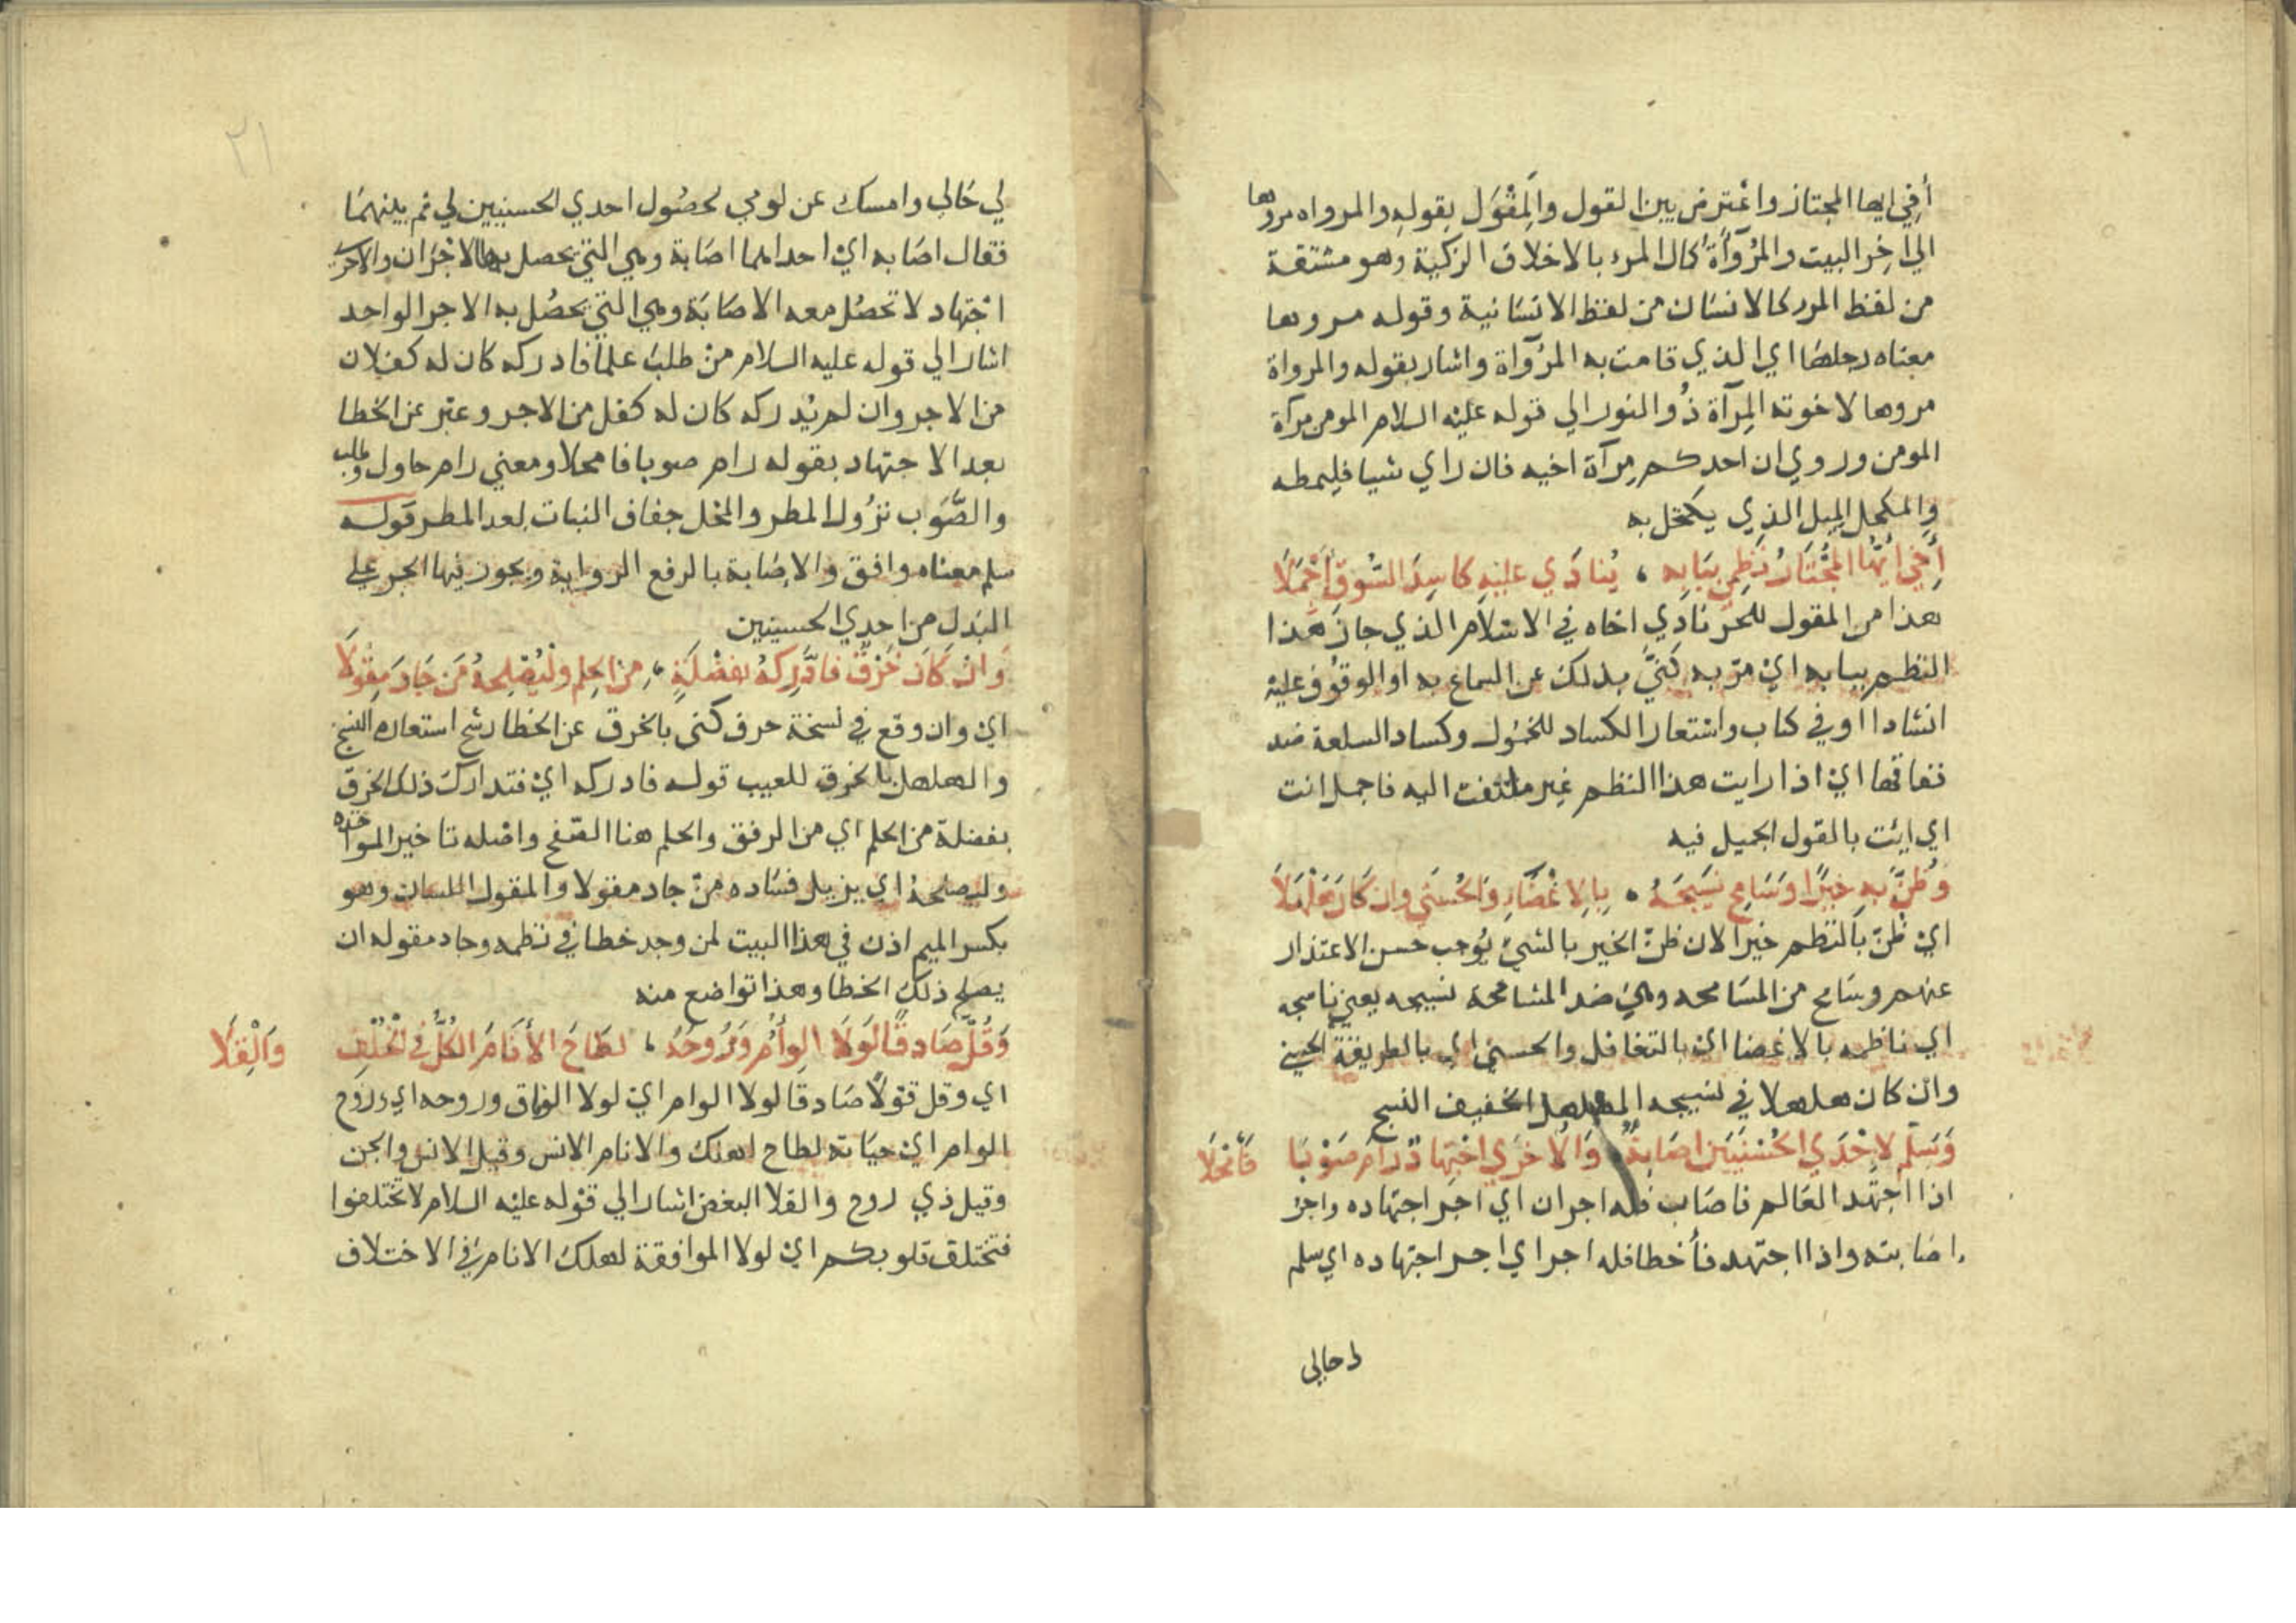 أخي ايها المجتاز واعترض بين القول والمقول بقوله والمرواه مروها
الي اخر البيت والمروآة كمال المرء بالاخلاق الزكية وهو مشتقة
من لفظ المرء كالانسان من لفظ الانسانية وقوله مروها
معناه رجلها اي الذي قامت به المروآة واشار بقوله والمرواة
مروها لاخوته المرآة ذو النور الي قوله عليه السلام المومن مرآة
المومن وروي ان احدكم مرآة اخيه فان راي شيا فليمطه
والمكحل الميل الذي يكتحل به
أَخي أيُّها المُجْتَازُ نَظمِي بِبَابِهِ ، يُنادَي عليْهِ كاسِدَ السُّوقِ أَجْمِلَا
هذا من المقول للحر نادي اخاه في الاسلام الذي جاز هذا
النظم ببابه اي مرّ به كنيَّ بذلك عن السماع به او الوقوف عليه
انشادا او في كتاب واستعار الكساد للخمول وكساد السلعة ضد
نفاقها اي اذا رايت هذا النظم غير ملتفت اليه فاجمل انت
اي ائت بالقول الجميل فيه
وَظُنَّ به خَيْرًا وَسَامِحْ نَسِيجَهُ ، بالاِغْضَاءِ وَالحُسْنَي وان كَانَ هَلْهَلَا
اي ظنّ بالنظم خيرا لان ظنّ الخير بالشيء يوجب حسن الاعتذار
عنهم وسامح من المسامحه وهي ضد المشامحة نسيجه يعني ناسجه
اي ناظمه بالاغضا اي بالتغافل والحسني اي بالطريقة الحسني
وان كان هلهلا في نسيجه المهلهل الخفيف النسج
وَسَلِّم لاِحْدَي الحُسْنَيَيْنِ اصَابةٌ وَالاُخْرَي اجْتِهَادٌ رَامَ صَوْبًا فَأَمْحَلَا
اذا اجتهد العالم فاصاب فله اجران اي اجر اجتهاده واجر
اصابته واذا اجتهد فأخطا فله اجر اي اجر اجتهاده اي سلم
لي حالي
٢١
لي حالي وامسك عن لومي لحصول احدي الحسنيين لي ثم بينهما
فقال اصابه اي احداهما اصابة وهي التي يحصل بها الاجران والاخري
اجتهاد لا تحصل معه الاصابة وهي التي يحصل به الاجر الواحد
اشار الي قوله عليه السلام من طلب علما فادركه كان له كفلان
من الاجر وان لم يدركه كان له كفل من الاجر وعبّر عن الخطا
بعد الاجتهاد بقوله رام صوبا فامحلا ومعني رام حاول وطلب
والصّوب نزول المطر والمحل جفاف النبات لعد المطر قوله
سلم معناه وافق والاصابة بالرفع الرواية ويجوز فيها الجر علي
البدل من احدي الحسنيين
وَانْ كَانَ خَرْقٌ فادَّرِكْهُ بفَضْلَةٍ ، مِنَ الحِلم وليُصْلِحهُ مَن جَادَ مِقْوَلَا
اي وان وقع في نسخة حرف كني بالخرق عن الخطا رشح استعاره النسج
والهلهل بالخرق للعيب قوله فادركه اي فتدارك ذلك الخرق
بفضلة من الحلم اي من الرفق والحلم هنا الصفح واصله تاخير المواخذه
وليصلحه اي يزيل فساده من جاد مقولا والمقول اللسان وهو
بكسر الميم اذن في هذا البيت لمن وجد خطا في نظمه وجاد مقوله ان
يصلح ذلك الخطا وهذا تواضع منه
وَقُل صَادقًا لَولَا الوِأَمُ وَرُوحُهُ ، لطَاحَ الأَنَامُ الكُلُّ في الخُلْفِ وَالْقِلَا
اي وقل قولا صادقا لولا الوام اي لولا الوفاق وروحه اي وروح
الوام اي حياته لطاح لهلك والانام الانس وقيل الانس والجن
وقيل ذي روح والقلا البغض اشار الي قوله عليه السلام لا تختلفوا
فتختلف قلوبكم اي لولا الموافقة لهلك الانام في الاختلاف